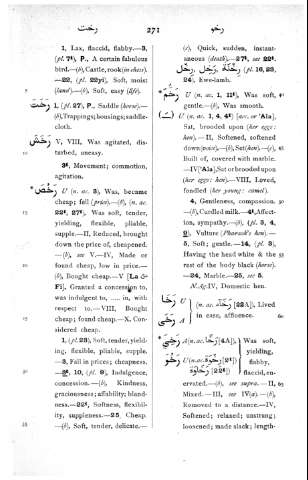 رخت 271 رخو
1, Lax, flaccid, flabby.—3,
(pl. 7¹), P., A certain fabulous
bird.—(b), Castle, rook (in chess).
—22, (pl. 22yi), Soft, moist
(land).—(b), Soft, easy (life).
رخت 1, (pl. 27), P., Saddle (horse).—
(b), Trappings; housings; saddle-
cloth.
V, VIII, Was agitated, dis-
turbed, uneasy.
3, Movement; commotion,
agitation.
رخص U (n. ac. 3), Was, became
cheap; fell (price).—(b), (n. ac.
22, 27), Was soft, tender,
yielding, flexible, pliable,
supple.—II, Reduced, brought
down the price of, cheapened.
—(b), see V.—IV, Made or
found cheap, low in price.—
(b), Bought cheap.—V [La &
Fi], Granted a concession to,
was indulgent to, ... in, with
respect to.—VIII, Bought
cheap; found cheap.—X, Con-
sidered cheap.
1, (pl. 23), Soft, tender, yield-
ing, flexible, pliable, supple.
—3, Fall in prices; cheapness.
10, (pl. 9), Indulgence,
concession.—(b), Kindness,
graciousness; affability; bland-
ness.—22, Softness, flexibil-
ity, suppleness.—25, Cheap.
—(b), Soft, tender, delicate.—
(c), Quick, sudden, instant-
aneous (death).—27, see 22.
(pl. 16, 23,
24), Ewe-lamb.
U (n. ac. 1, 11), Was soft,
gentle.—(b), Was smooth.
U (n. ac. 1, 4, 4) [acc. or 'Ala],
Sat, brooded upon (her eggs:
hen).—II, Softened, softened
down (voice).—(b), Set (hen).—(c),
Built of, covered with marble.
—IV ['Ala], Sat or brooded upon
(her eggs: hen).—VIII, Loved,
fondled (her young: animal).
4, Gentleness, compassion.
—(b), Curdled milk.—4, Affect-
ion, sympathy.—(b), (pl. 3, 4,
9), Vulture (Pharaoh's hen).—
5, Soft; gentle.—14, (pl. 3),
Having the head white & the
rest of the body black (horse).
—24, Marble.—25, see 5.
A'.Ag.IV, Domestic hen.
U رخا (n. ac. رخاء [22A]), Lived
A in ease, affluence.
A (n. ac. [4A]), Was soft,
yielding,
U (n. ac. رخاوة [22t]) flabby,
flaccid, en-
ervated.—(b), see supra.—II,
Mixed.—III, see IV (a).—(b),
Removed to a distance.—IV,
Softened; relaxed; unstrung;
loosened; made slack; length-